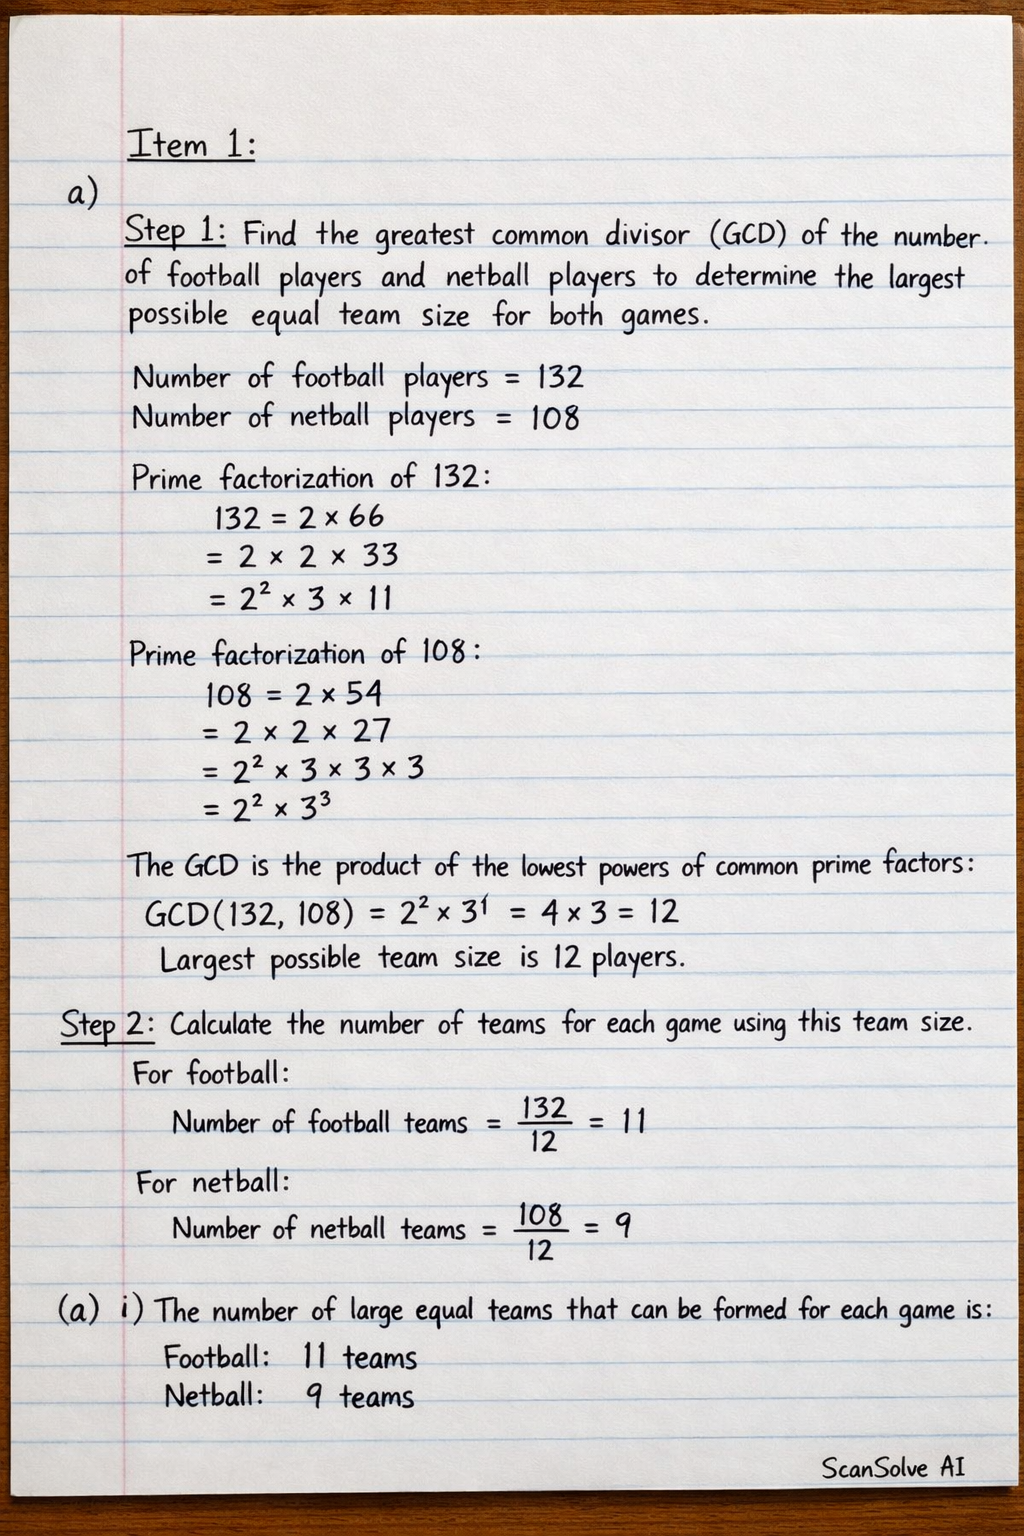 Item 1:
a)
Step 1: Find the greatest common divisor (GCD) of the number.
of football players and netball players to determine the largest
possible equal team size for both games.
Number of football players = 132
Number of netball players = 108
Prime factorization of 132:
132 = 2 × 66
= 2 × 2 × 33
= 2² × 3 × 11
Prime factorization of 108:
108 = 2 × 54
= 2 × 2 × 27
= 2² × 3 × 3 × 3
= 2² × 3³
The GCD is the product of the lowest powers of common prime factors:
GCD(132, 108) = 2² × 3¹ = 4 × 3 = 12
Largest possible team size is 12 players.
Step 2: Calculate the number of teams for each game using this team size.
For football:
Number of football teams = 132/12 = 11
For netball:
Number of netball teams = 108/12 = 9
(a) i) The number of large equal teams that can be formed for each game is:
Football: 11 teams
Netball: 9 teams
ScanSolve AI